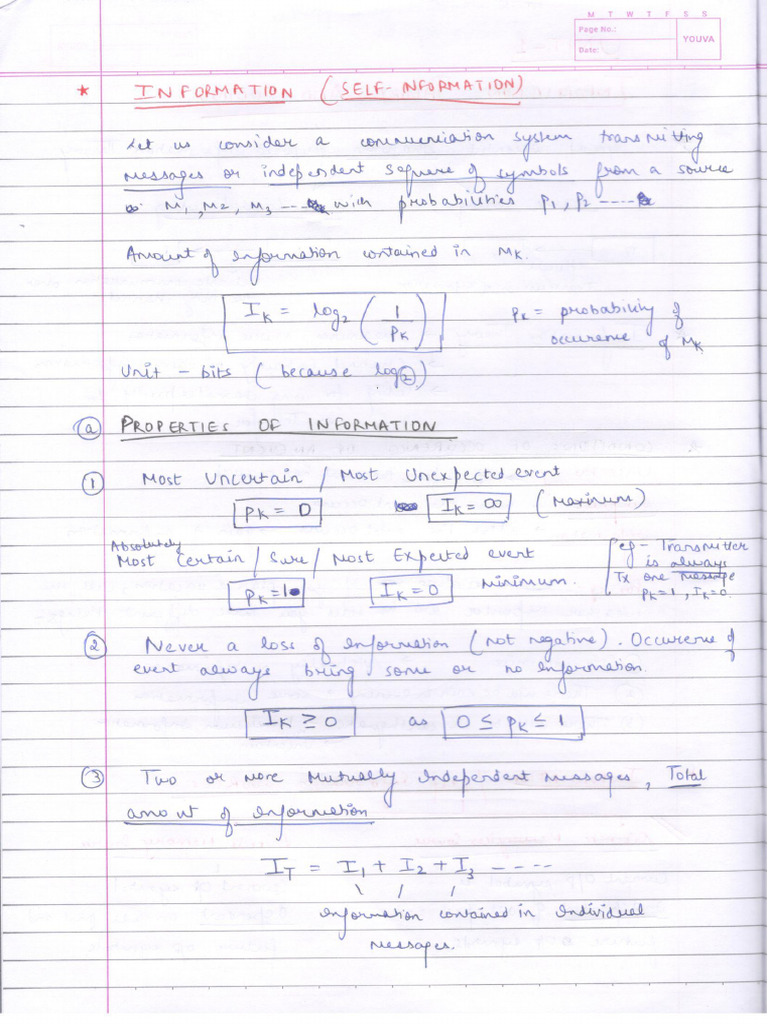 M T W T F S S
Page No.:
Date:
YOUVA
* INFORMATION (SELF-INFORMATION)
Let us consider a communication system transmitting
messages or independent sequence of symbols from a source
M1, M2, M3 ---- with probabilities p1, p2 ----
Amount of Information contained in MK.
IK = log2 (1/PK)
PK = probability of
occurence of MK
Unit - bits (because log2)
(a) PROPERTIES OF INFORMATION
(1) Most Uncertain / Most Unexpected event
PK = 0 IK = ∞ (Maximum)
Absolutely
Most Certain / Sure / Most Expected event
PK = 1 IK = 0 Minimum.
eg - Transmitter
is always
Tx one message
PK = 1, IK = 0.
(2) Never a loss of Information (not negative). Occurence of
event always bring some or no Information.
IK ≥ 0 as 0 ≤ PK ≤ 1
(3) Two or more Mutually Independent messages, Total
amount of Information
IT = I1 + I2 + I3 ----
Information contained in Individual
messages.